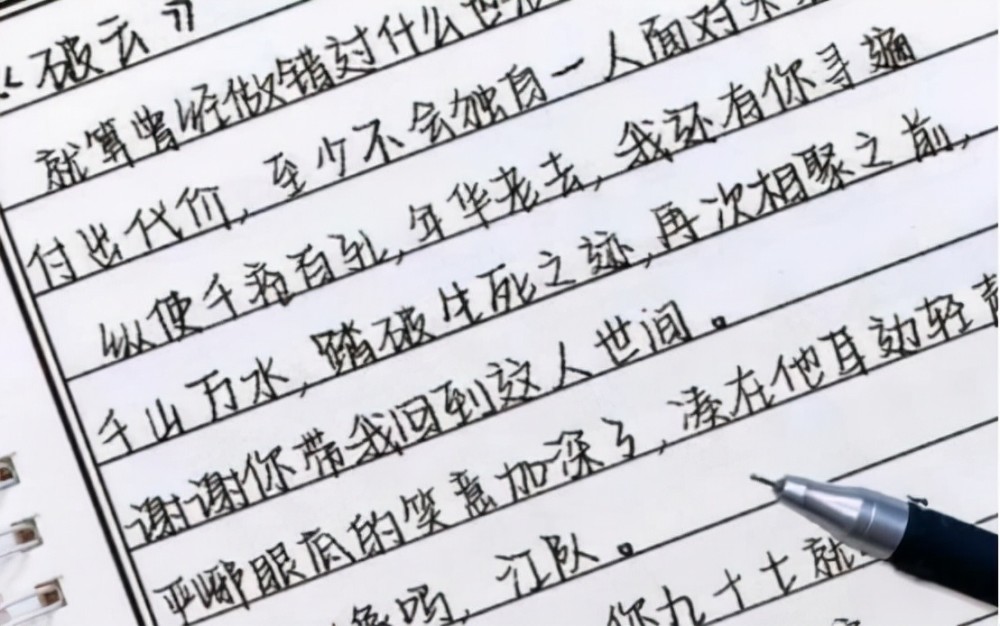 《破云》
就算曾经做错过什么也
付出代价，至少不会独自一人面对
纵使千疮百孔，年华老去，我还有你寻遍
千山万水，踏破生死之迹，再次相聚之前，
谢谢你带我回到这人世间。
严峫眼底的笑意加深了，凑在他耳边轻声
吗，江队。
你九十七就